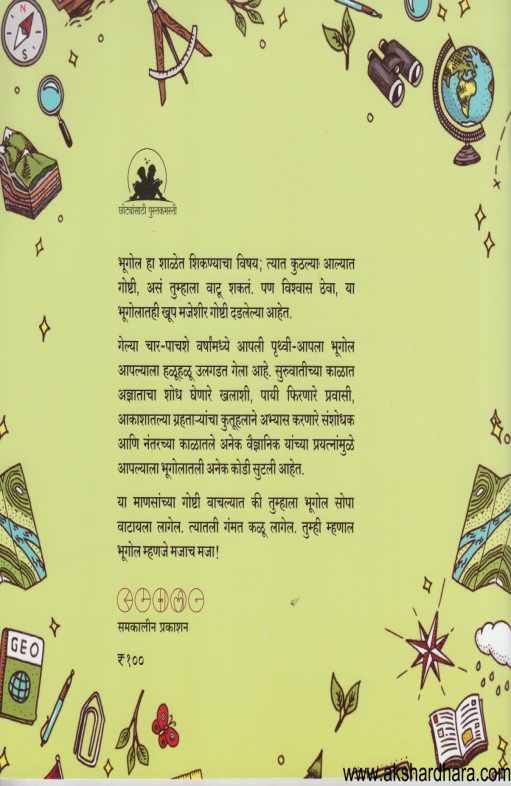 N
S
छोट्यांसाठी पुस्तकमस्ती
भूगोल हा शाळेत शिकण्याचा विषय; त्यात कुठल्या आल्यात
गोष्टी, असं तुम्हाला वाटू शकतं. पण विश्वास ठेवा, या
भूगोलातही खूप मजेशीर गोष्टी दडलेल्या आहेत.
गेल्या चार-पाचशे वर्षांमध्ये आपली पृथ्वी-आपला भूगोल
आपल्याला हळूहळू उलगडत गेला आहे. सुरुवातीच्या काळात
अज्ञाताचा शोध घेणारे खलाशी, पायी फिरणारे प्रवासी,
आकाशातल्या ग्रहताऱ्यांचा कुतूहलाने अभ्यास करणारे संशोधक
आणि नंतरच्या काळातले अनेक वैज्ञानिक यांच्या प्रयत्नांमुळे
आपल्याला भूगोलातली अनेक कोडी सुटली आहेत.
या माणसांच्या गोष्टी वाचल्यात की तुम्हाला भूगोल सोपा
वाटायला लागेल. त्यातली गंमत कळू लागेल. तुम्ही म्हणाल
भूगोल म्हणजे मजाच मजा!
समकालीन प्रकाशन
₹१००
GEO
www.akshardhara.com